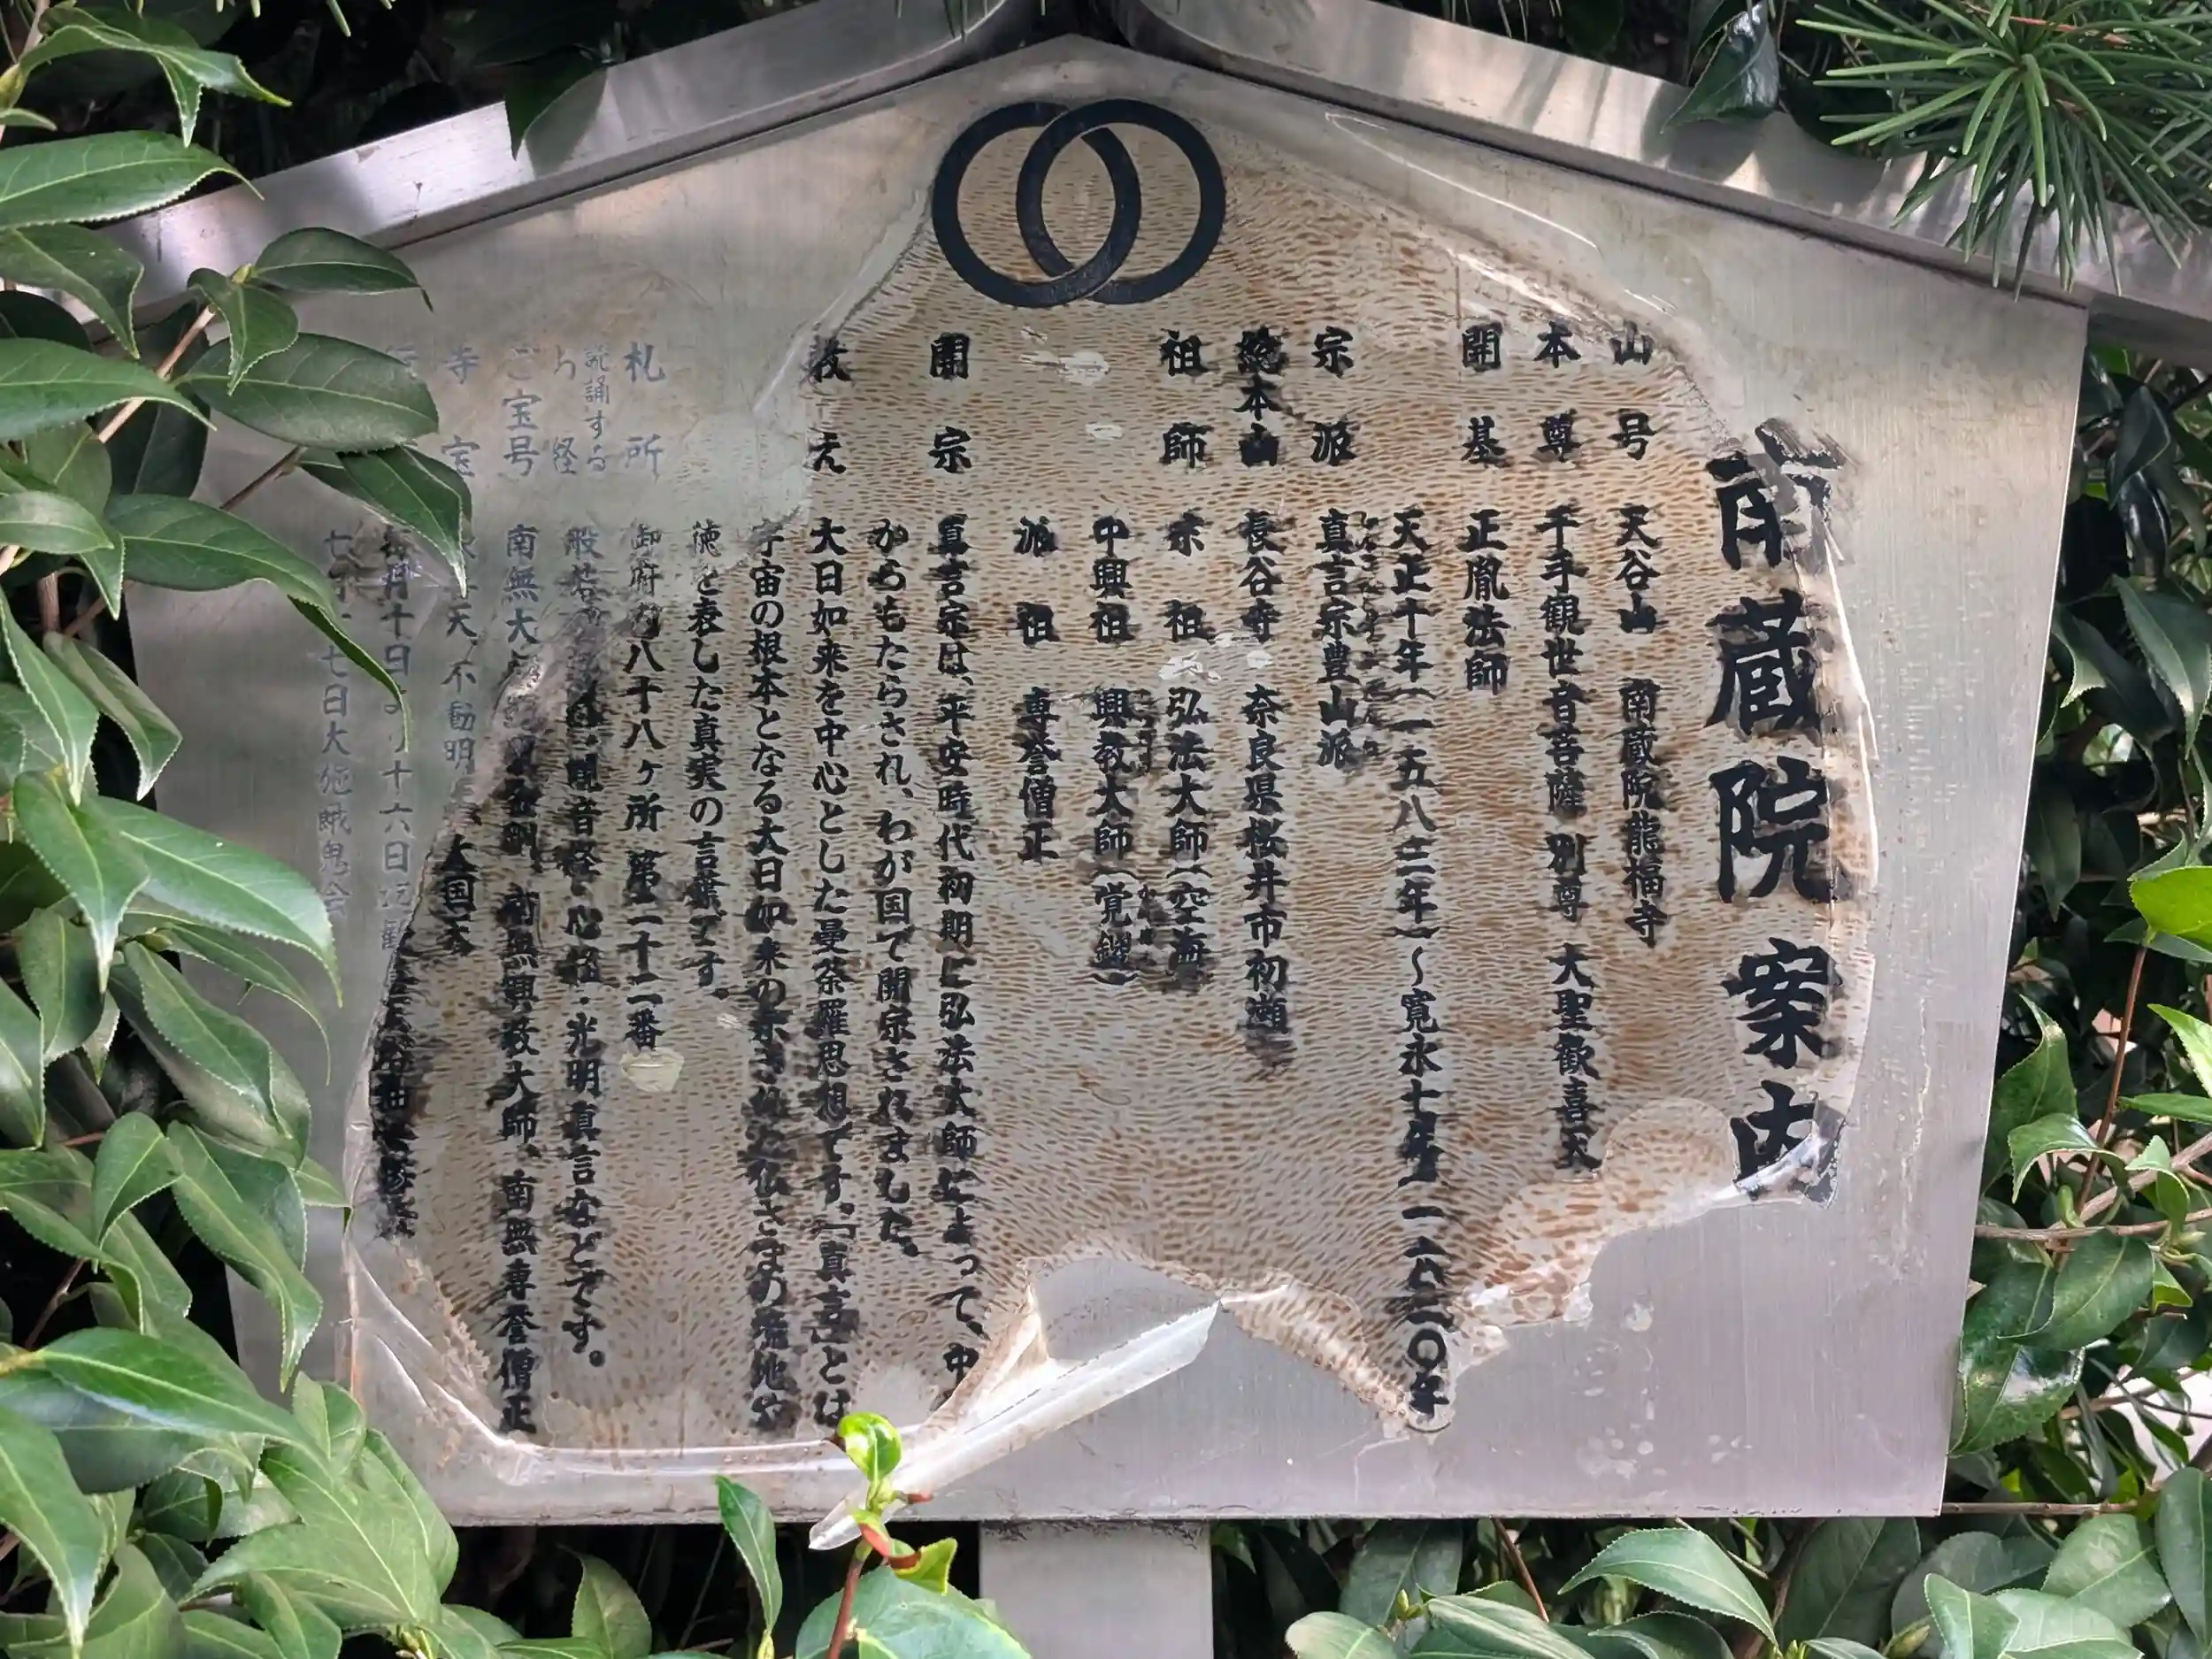 南蔵院 案内
山号 天谷山 南蔵院龍福寺
本尊 千手観世音菩薩 別尊 大聖歓喜天
開基 正胤法師
天正十年(一五八二年)~寛永七年 一六三〇年
宗派 真言宗豊山派
総本山 長谷寺 奈良県桜井市初瀬
祖師 宗祖 弘法大師(空海
中興祖 興教大師(覚鑁)
派祖 専誉僧正
開宗 真言宗は、平安時代初期に弘法大師によって、中
からもたらされ、わが国で開宗されました。
教え 大日如来を中心とした曼荼羅思想です。「真言」とは
宇宙の根本となる大日如来の
徳を表した真実の言葉です。
札所 御府内八十八ヶ所 第二十二番
読誦する
お経 般若心経・観音経・光明真言などです。
ご宝号 南無大師遍照金剛、南無興教大師、南無専誉僧正
寺宝 天、不動明 大国天
毎月十日より十六日
七月十七日大施餓鬼会